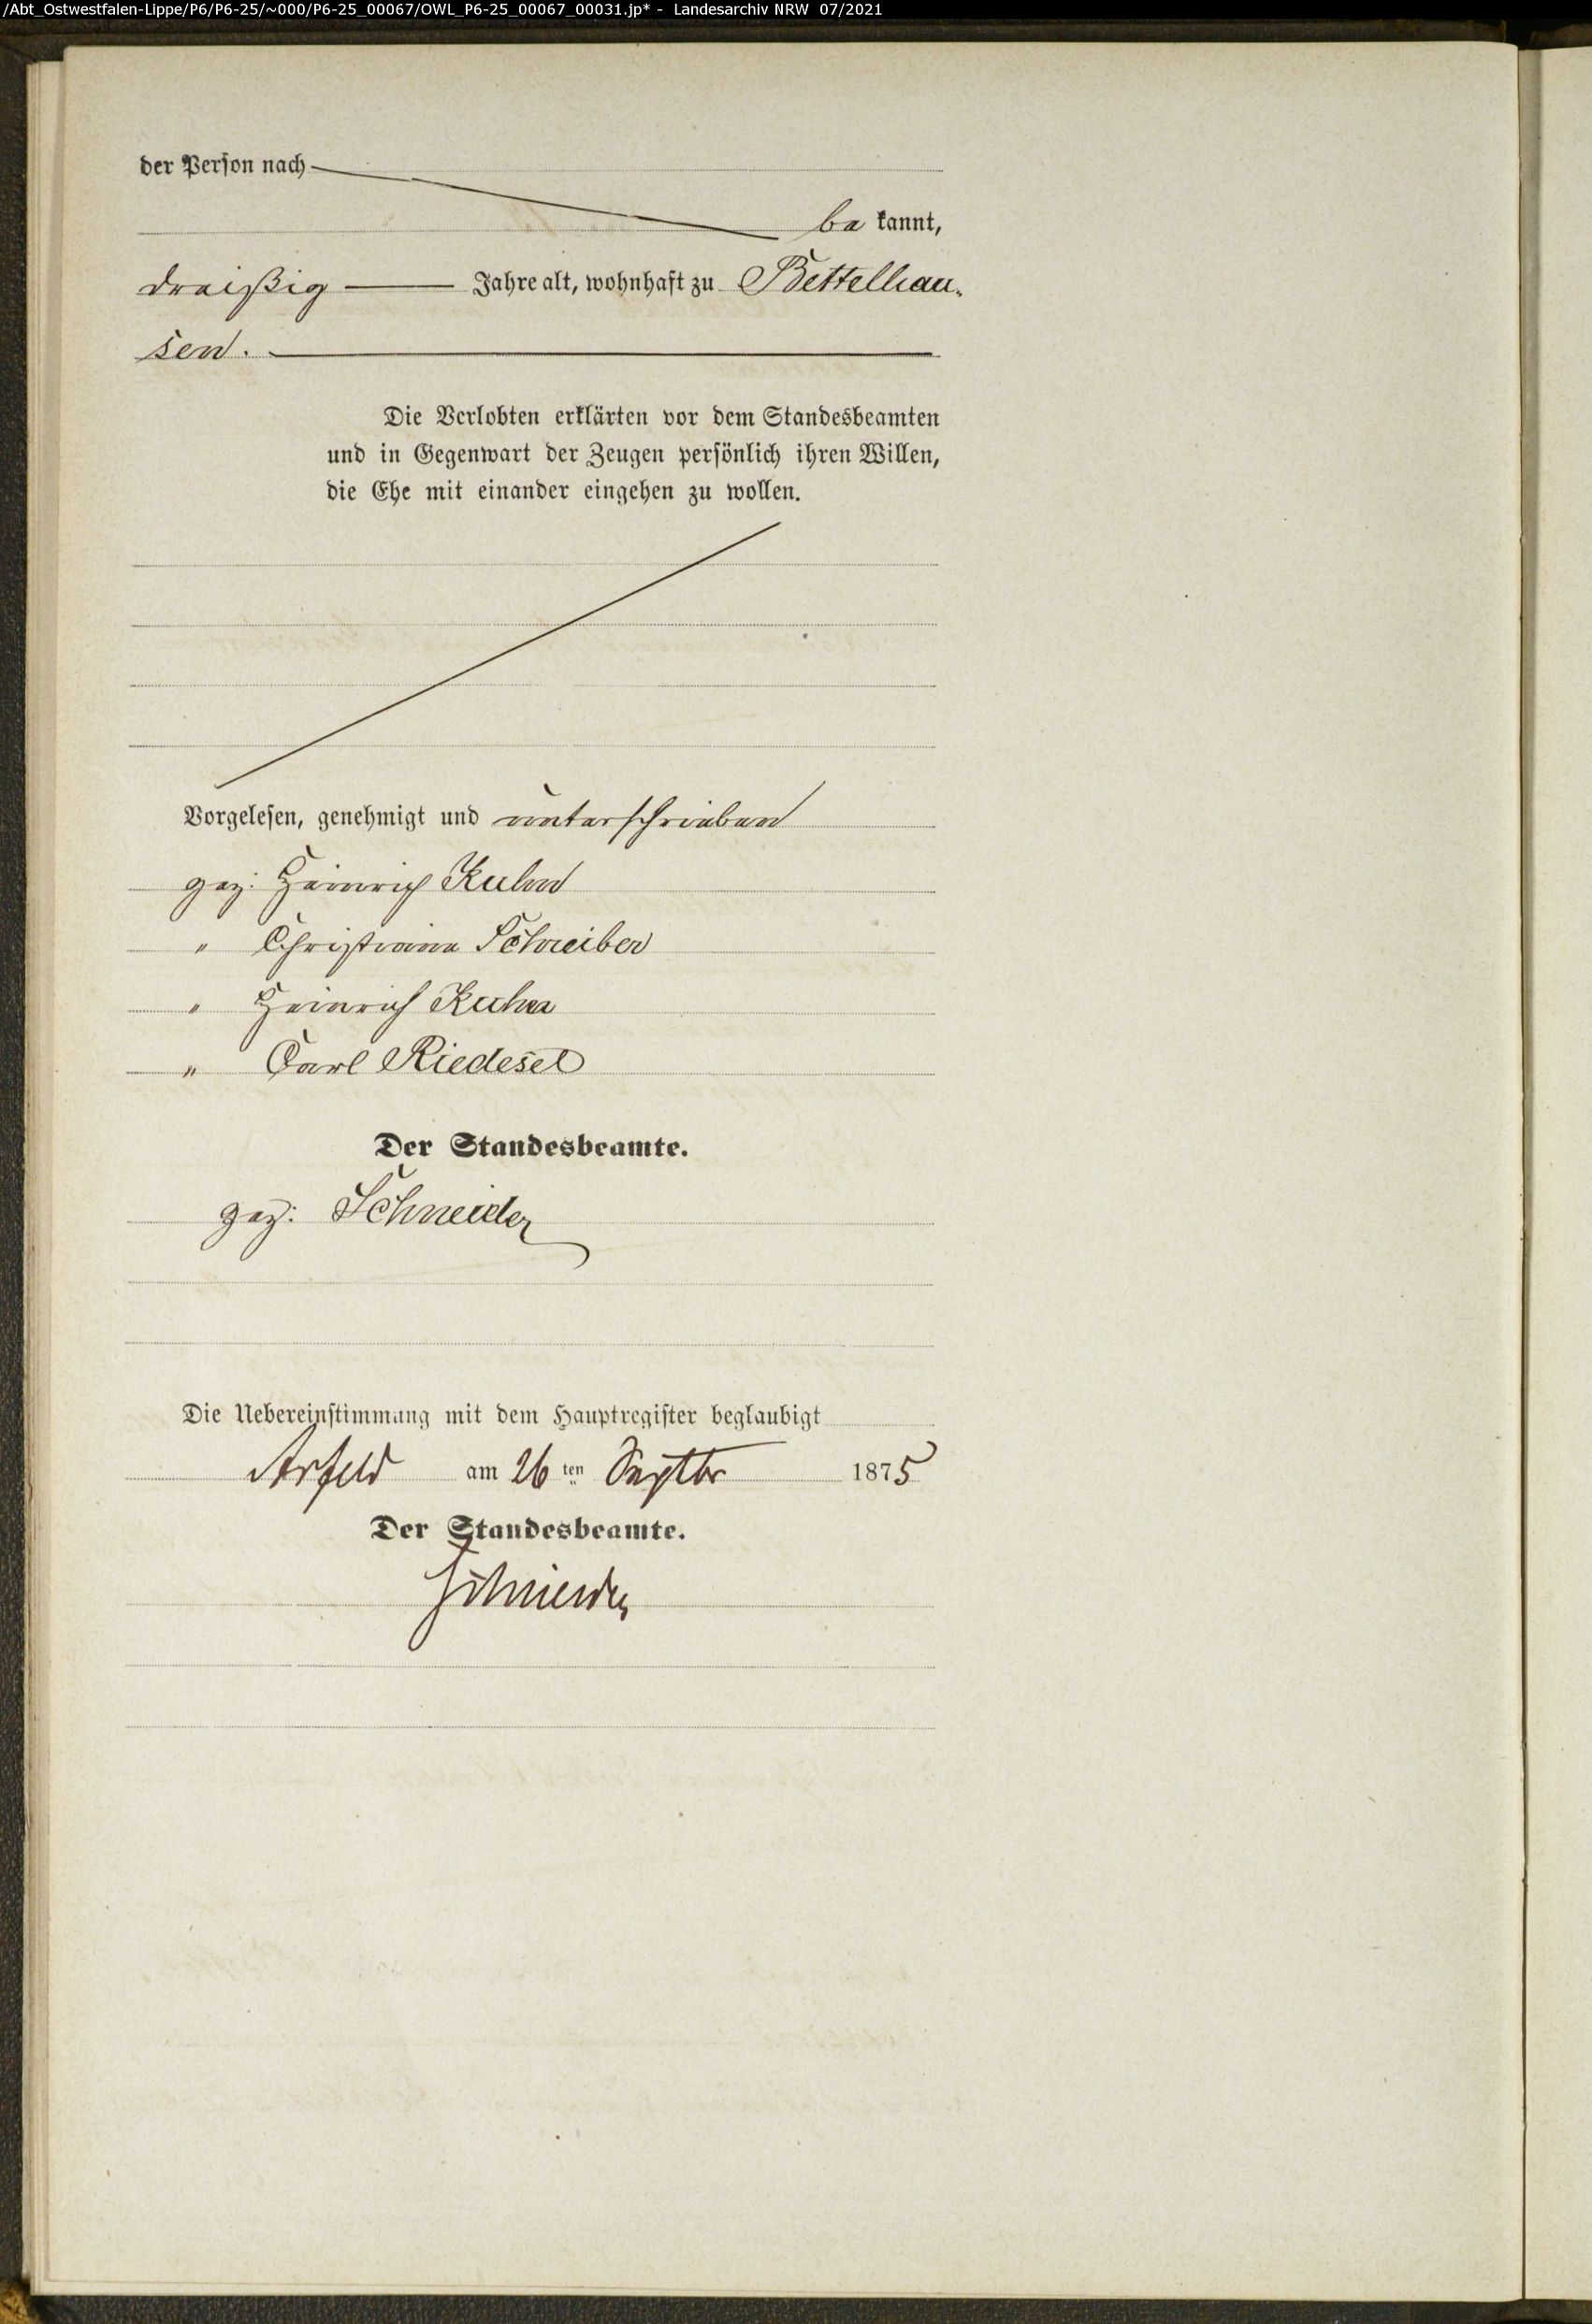 /Abt_Ostwestfalen-Lippe/P6/P6-25/~000/P6-25_00067/OWL_P6-25_00067_00031.jp* - Landesarchiv NRW 07/2021
der Person nach
be kannt,
dreißig Jahre alt, wohnhaft zu Bettelhau-
sen.
Die Verlobten erklärten vor dem Standesbeamten
und in Gegenwart der Zeugen persönlich ihren Willen,
die Ehe mit einander eingehen zu wollen.
Vorgelesen, genehmigt und unterschrieben
gez: Heinrich Kuhn
" Christiane Schreiber
" Heinrich Kuhn
" Carl Riedesel
Der Standesbeamte.
gez: Schneider
Die Uebereinstimmung mit dem Hauptregister beglaubigt
Arfeld am 26 ten Septbr 1875
Der Standesbeamte.
Schneider